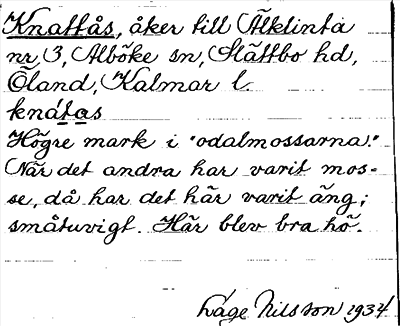 Knattås, åker till Älklinta
nr 3, Alböke sn, Slättbo hd,
Öland, Kalmar l.
knátas
Högre mark i "odalmossarna."
När det andra har varit mos-
se, då har det här varit äng;
småtuvigt. Här blev bra hö.
Låge Nilsson 1934